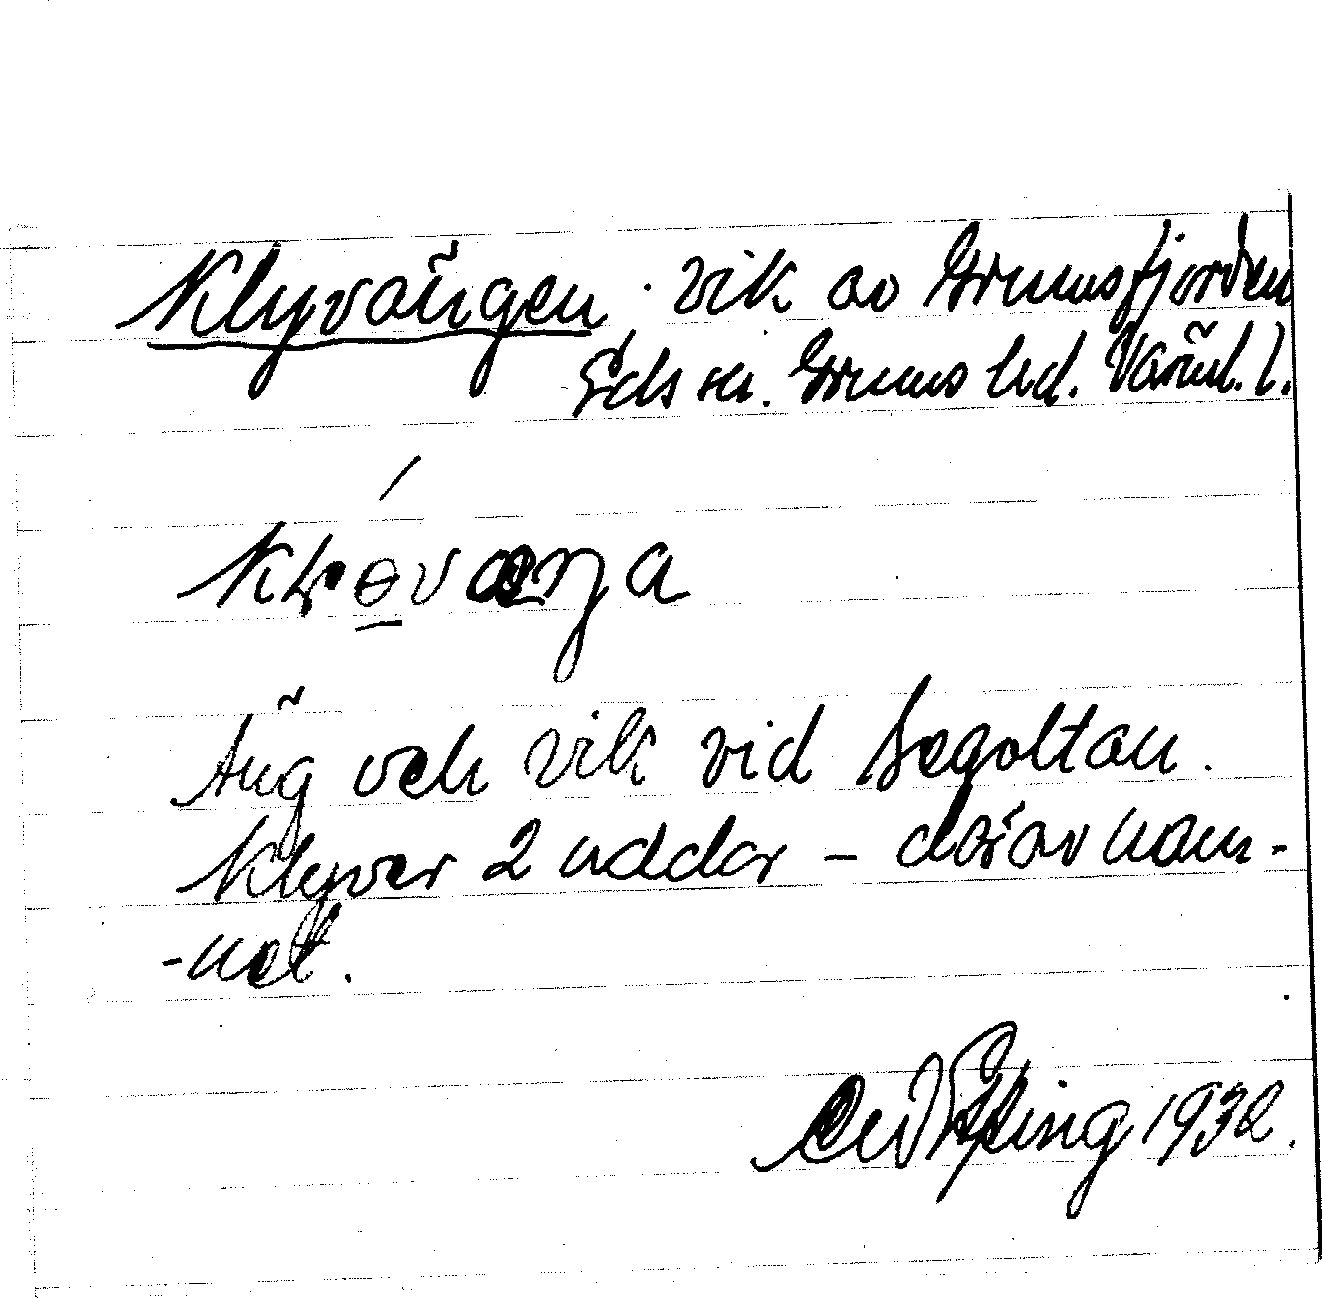 Klyvängen, vik av Grumsfjorden
Eds sn. Grums hd. Värml. l.
Äng och vik vid Segoltan.
Klyver 2 uddar – därav nam-
-net.
1932.